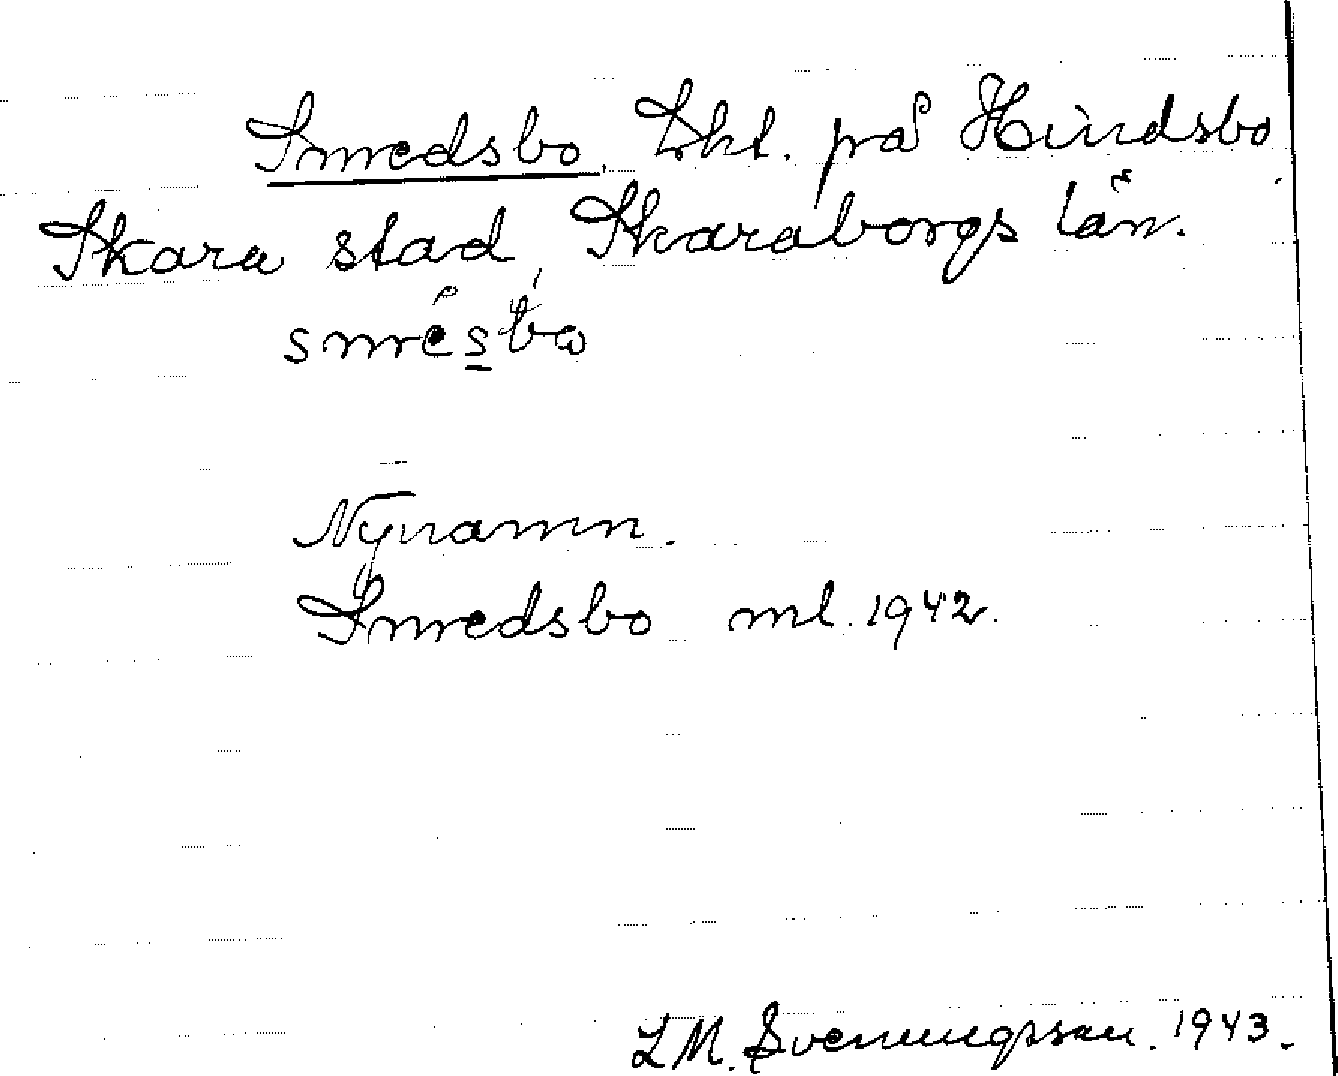 Smedsbo, Lht. på Hindsbo
Skara stad, Skaraborgs län.
smésbo
Nynamn.
Smedsbo ml. 1942.
L M. Svenungsson. 1943.